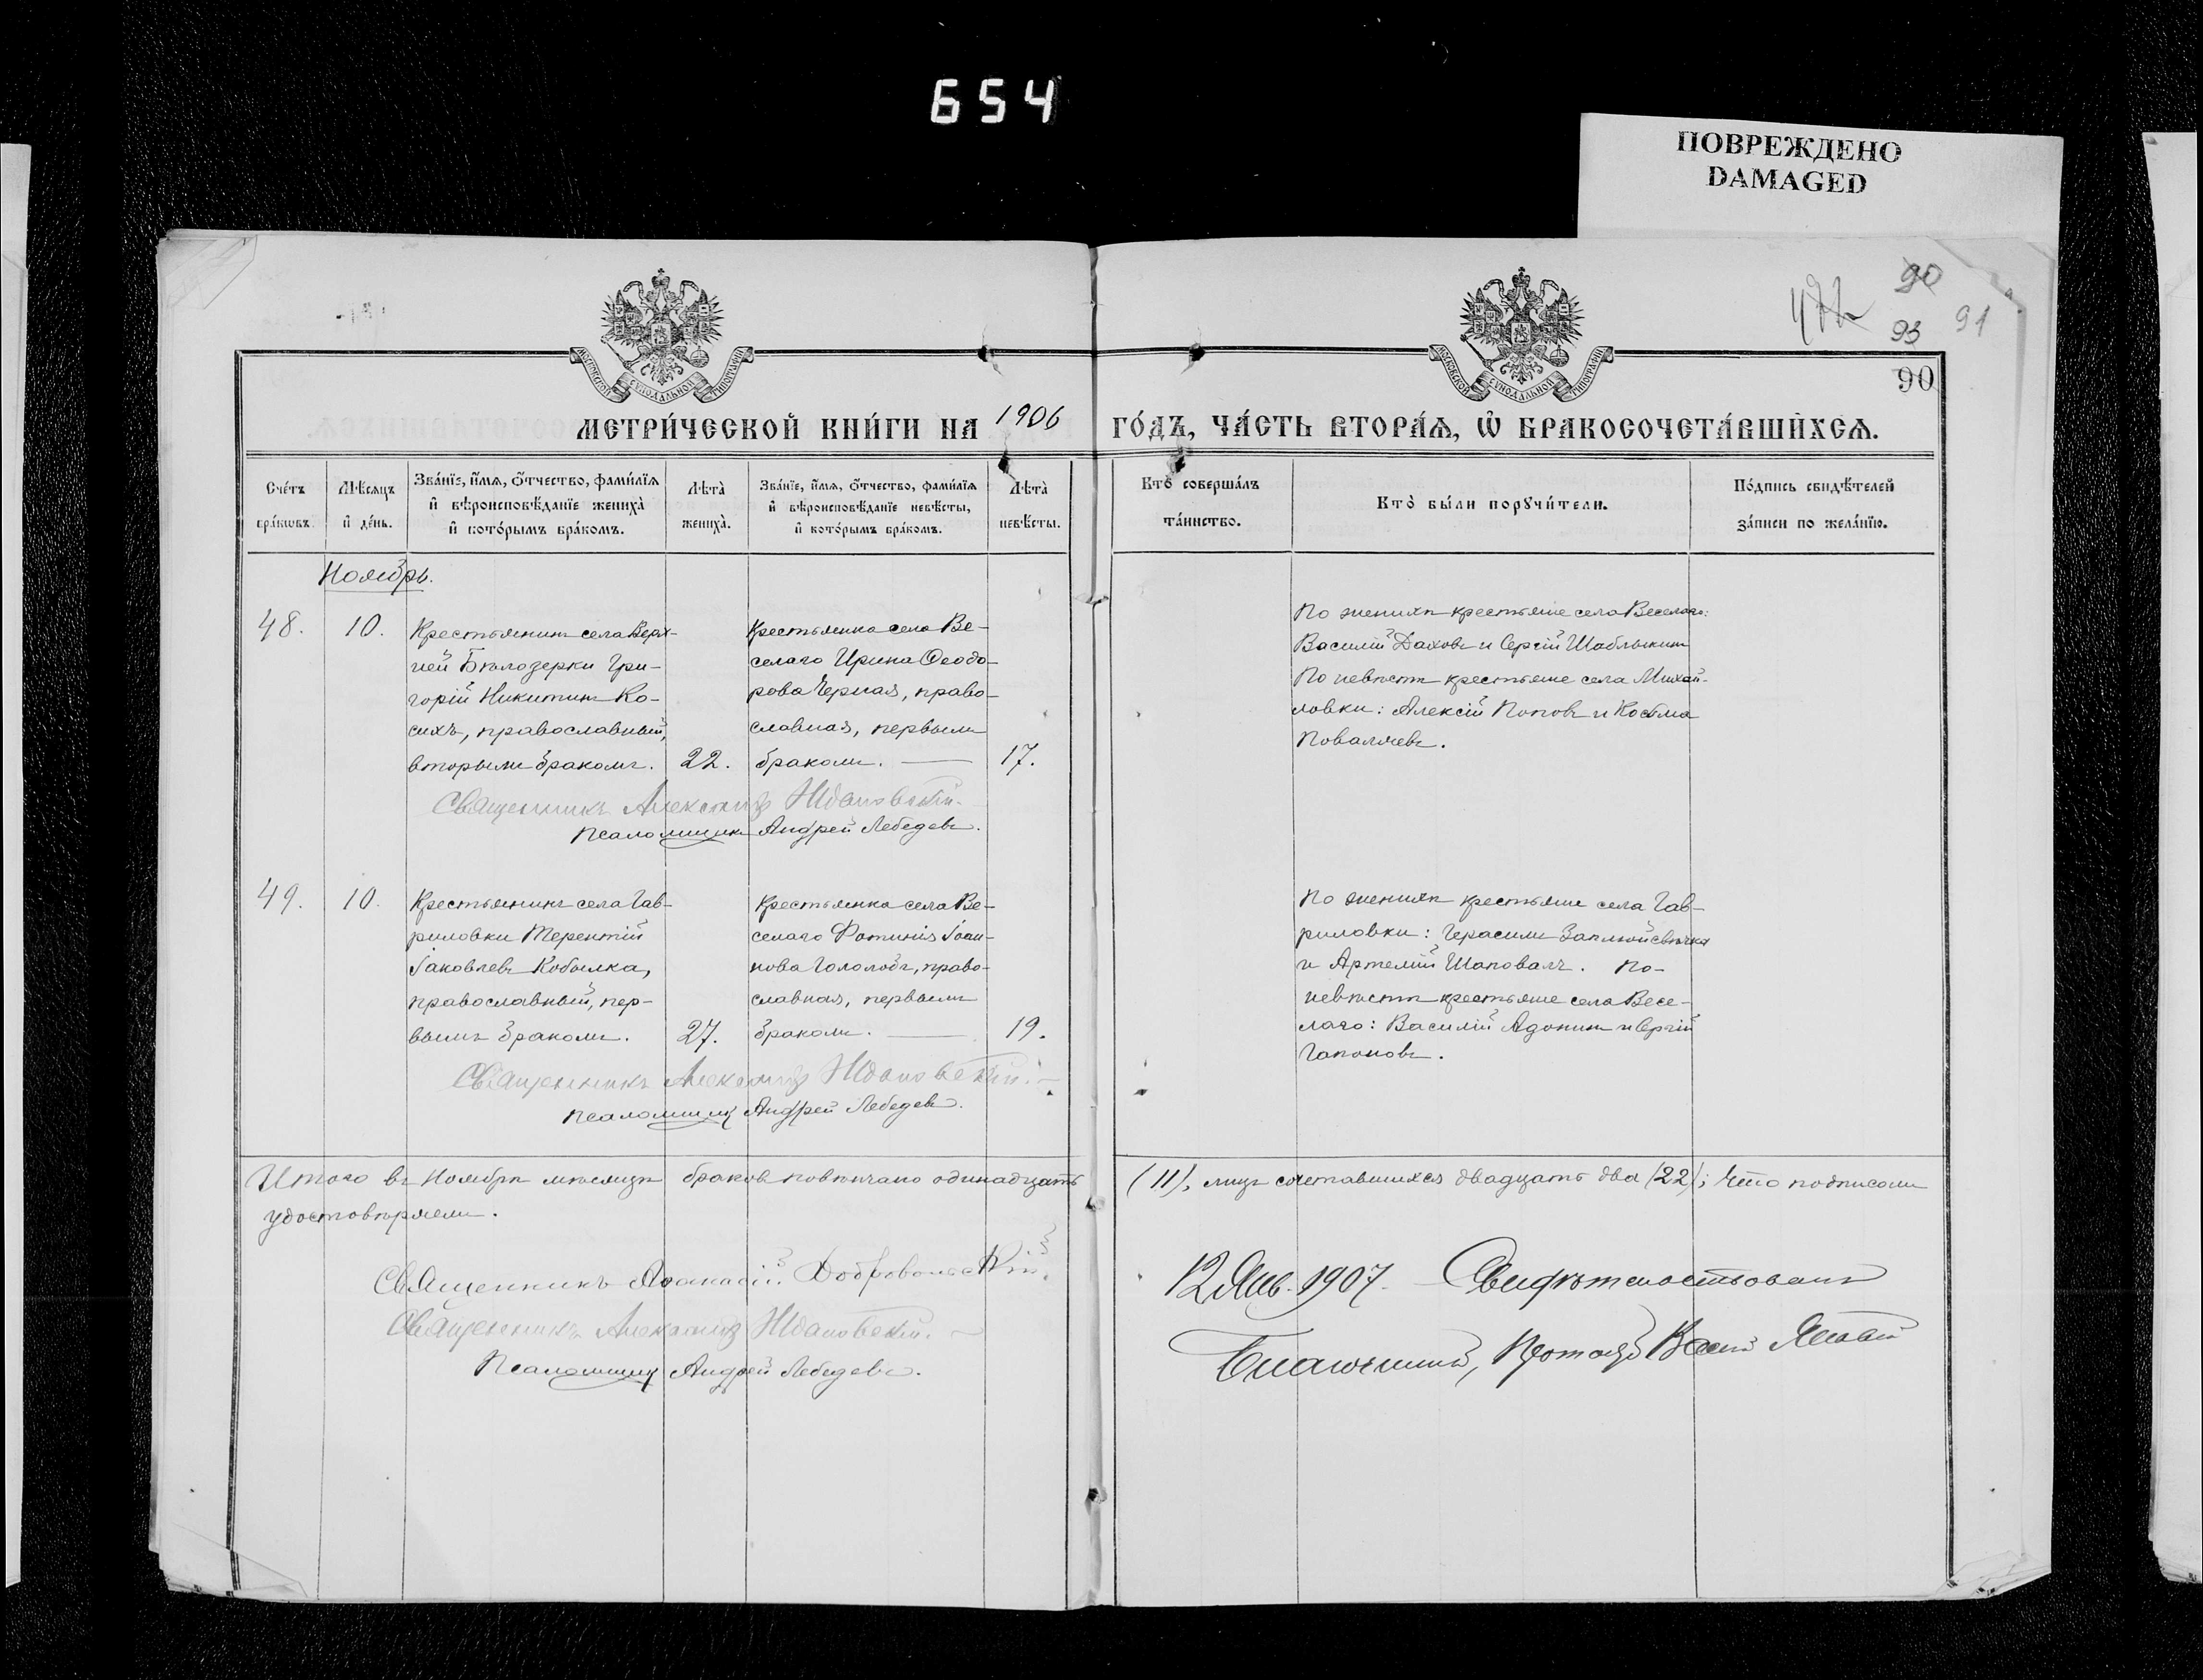 654
ПОВРЕЖДЕНО
DAMAGED
90
93 91
90
МОСКОВСКОЙ СѴНОДАЛЬНОЙ ТИПОГРАФІИ
МОСКОВСКОЙ СѴНОДАЛЬНОЙ ТИПОГРАФІИ
МЕТРИ́ЧЕСКОЙ КНИ́ГИ НА 1906 ГО́ДЪ, ЧА́СТЬ ВТОРА́Ѧ, Ѡ҆ БРАКОСОЧЕТА́ВШИХСѦ.
Сче́тъ
бра́кѡвъ.
Мѣ́сѧцъ
и҆ де́нь.
Зва́нїе, и҆́мѧ, ѻ҆́тчество, фами́лїѧ
и҆ вѣроисповѣ́данїе жениха̀
и҆ кото́рымъ бра́комъ.
Лѣта̀
жениха̀.
Зва́нїе, и҆́мѧ, ѻ҆́тчество, фами́лїѧ
и҆ вѣроисповѣ́данїе невѣ́сты,
и҆ кото́рымъ бра́комъ.
Лѣта̀
невѣ́сты.
Кто̀ соверша́лъ
та́инство.
Кто̀ бы́ли порꙋчи́тели.
По́дпись свидѣ́телей
за́писи по жела́нїю.
Ноябрь.
48.
10.
Крестьянинъ села Верх-
ней Бѣлозерки Гри-
горій Никитинъ Ко-
сихъ, православный,
вторымъ бракомъ.
22.
Крестьянка села Ве-
селаго Ирина Ѳеодо-
рова Черная, право-
славная, первымъ
бракомъ.
17.
По женихѣ крестьяне села Веселаго:
Василій Даховъ и Сергій Шаблыкинъ
По невѣстѣ крестьяне села Михай-
ловки: Алексій Поповъ и Косьма
Поваляевъ.
Священникъ Александръ Ждановскій.
Псаломщикъ Андрей Лебедевъ.
49.
10.
Крестьянинъ села Гав-
риловки Терентій
Іаковлевъ Кобылка,
православный, пер-
вымъ бракомъ.
27.
Крестьянка села Ве-
селаго Фотинія Іоан-
нова Гололобъ, право-
славная, первымъ
бракомъ.
19.
По женихѣ крестьяне села Гав-
риловки: Герасимъ Заплюйсвѣчка
и Артемій Шаповалъ. По-
невѣстѣ крестьяне села Весе-
лаго: Василій Адонинъ и Сергій
Гапоновъ.
Священникъ Александръ Ждановскій.
Псаломщикъ Андрей Лебедевъ.
Итого въ Ноябрѣ мѣсяцѣ браковъ повѣнчано одинадцать (11), лицъ сочетавшихся двадцать два (22); что подписомъ
удостовѣряемъ.
Священникъ Аѳанасій Добровольскій.
Священникъ Александръ Ждановскій.
Псаломщикъ Андрей Лебедевъ.
12 Янв. 1907. Свидѣтельствовалъ
Благочинный,